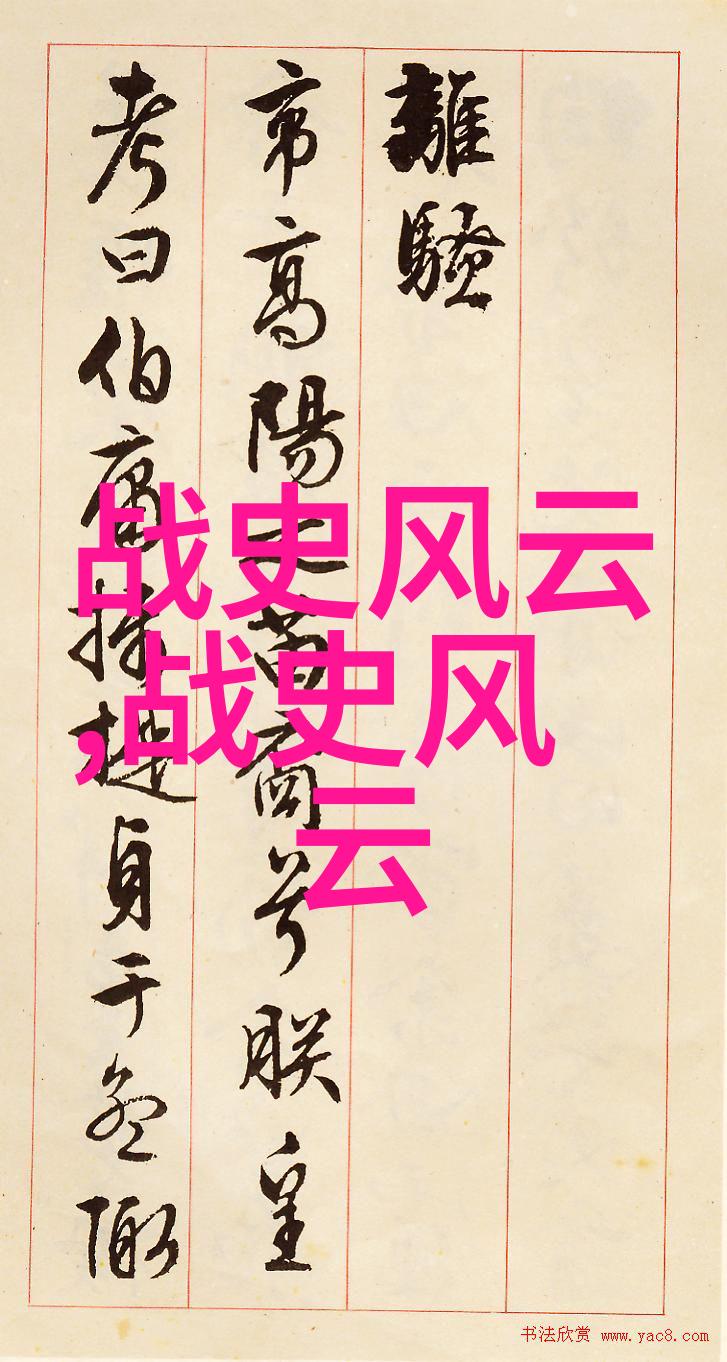 離騷
帝高陽之苗裔兮朕皇
考曰伯庸攝提貞于孟陬
战史风云
,战史风
云
书法欣赏 www.yac8.com